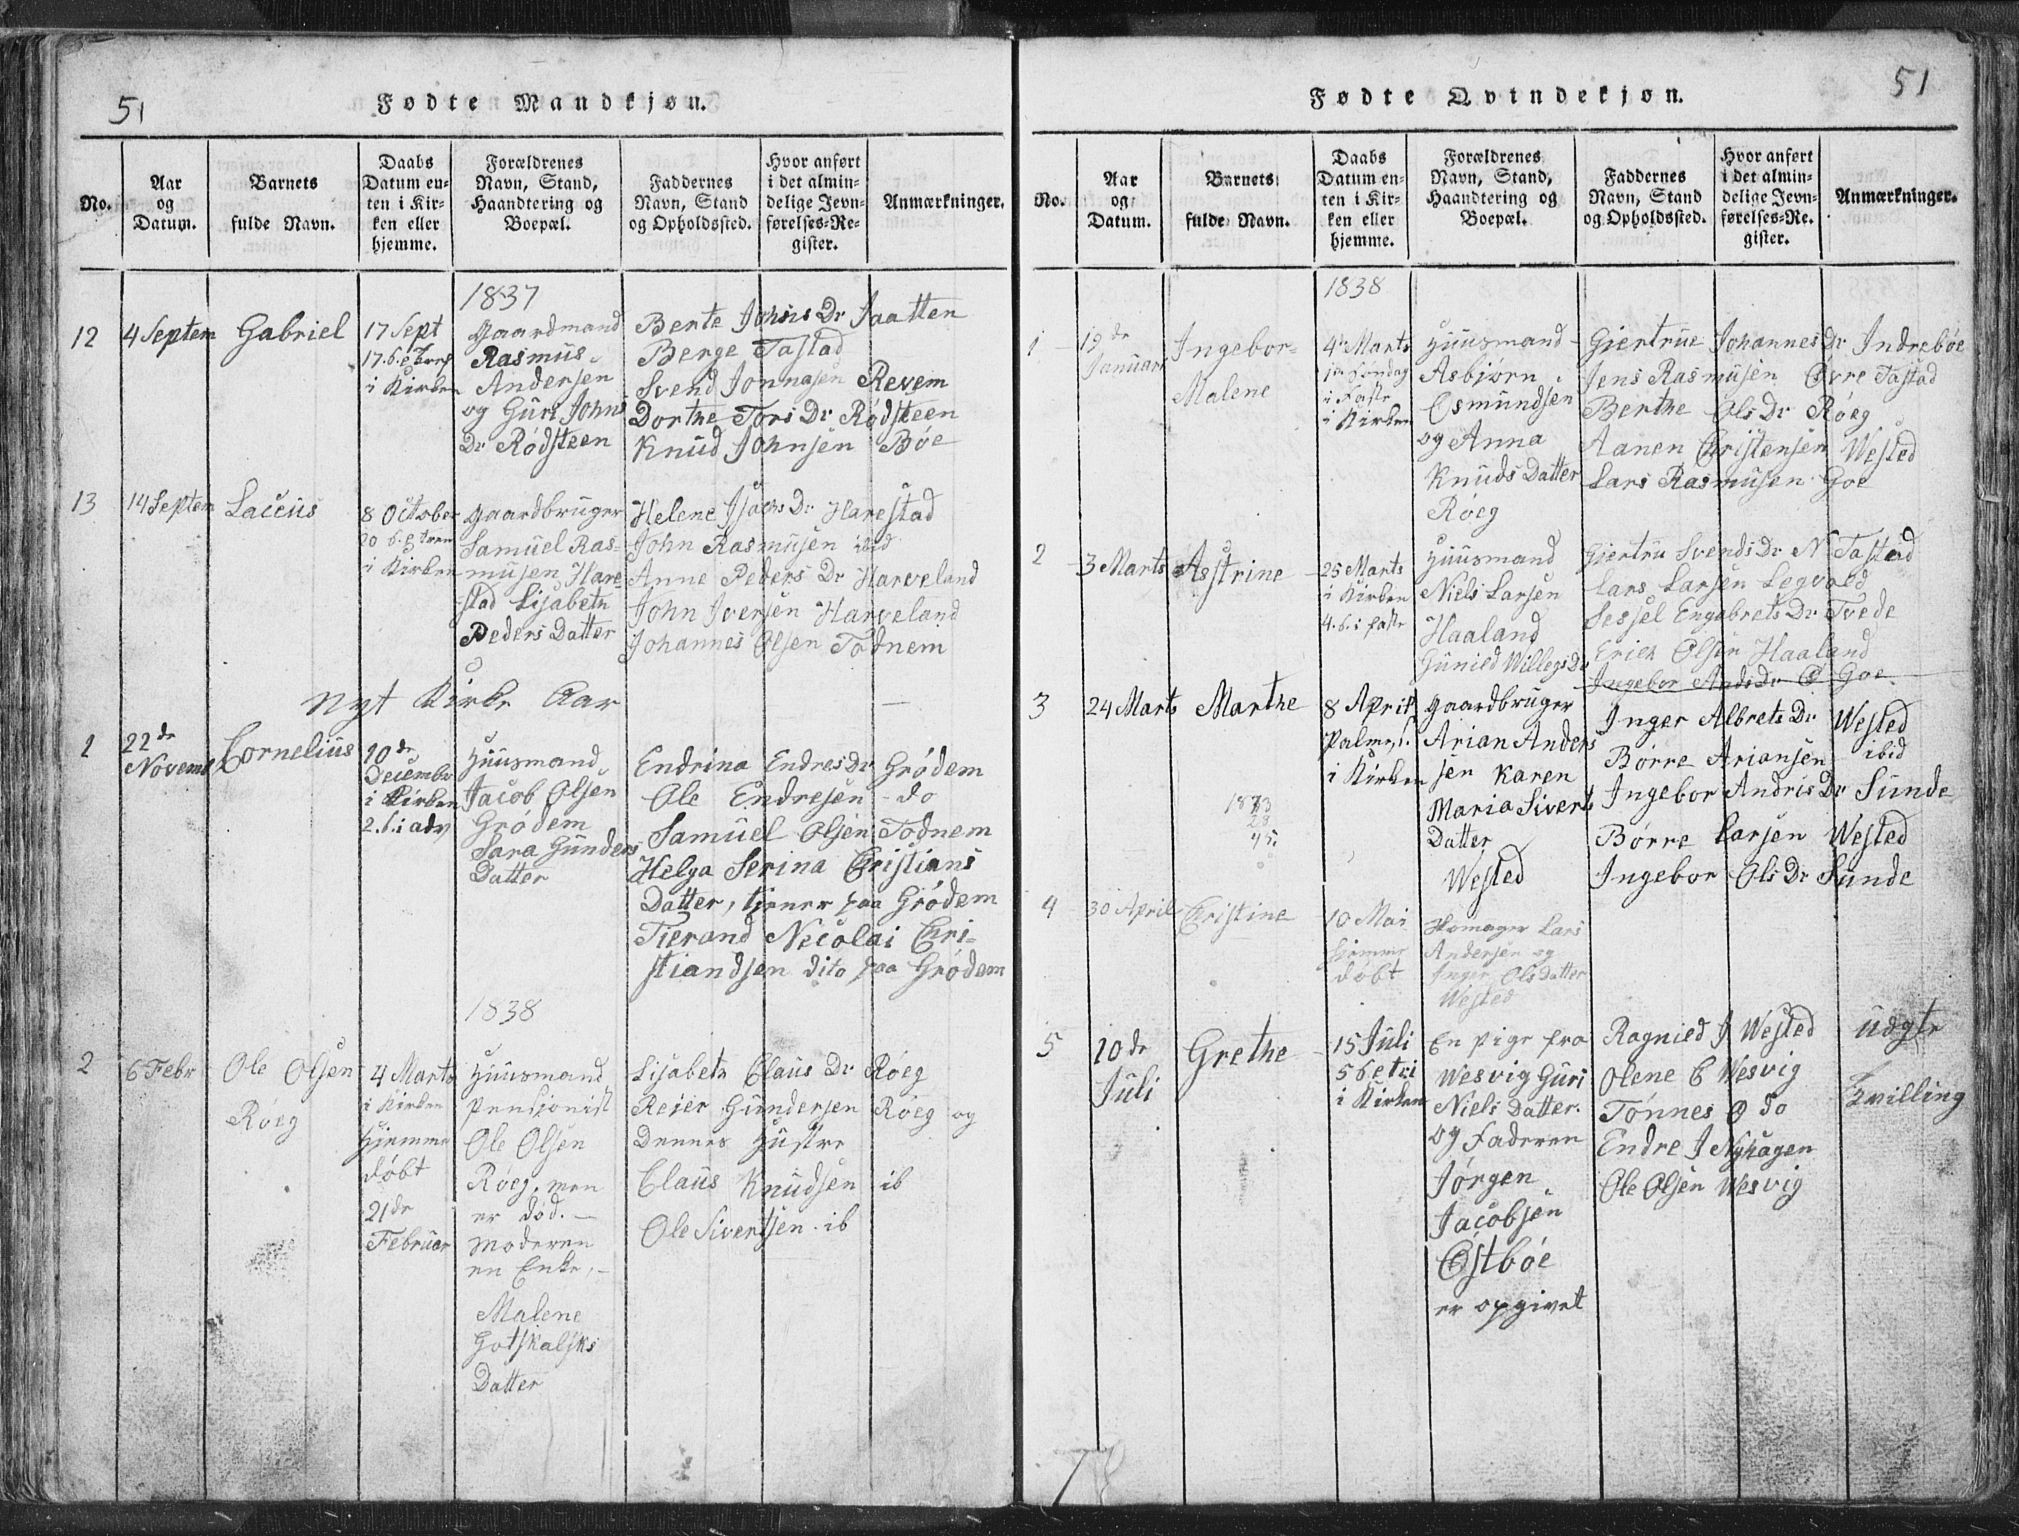 51
Fødte Mandkjøn.
No.
Aar
og
Datum.
Barnets
fulde Navn.
Daabs
Datum en-
ten i Kir-
ken eller
hjemme.
Forældrenes
Navn, Stand,
Haandtering og
Boepæl.
Faddernes
Navn, Stand
og Opholdssted.
Hvor anført
i det almin-
delige Jevn-
førelses-Re-
gister.
Anmærkninger.
1837
12
4 Septem
Gabriel
17 Sept
i Kirken
Gaardmand
Rasmus
Andersen
og Guri Johns
Dr Rödsteen
Berte Johns Dr Jaatten
Berge Tastad
Svend Jonnasen Revem
Dorthe Tors Dr Rödsteen
Knud Johnsen Böe
13
14 Septem
Laceus
8 October
i Kirken
Gaardbruger
Samuel Ras-
musen Hare-
stad Lisabeth
Peders Datter
Helene Isachs Dr Harestad
John Rasmusen ibid
Anne Peders Dr Harveland
John Iversen Harveland
Johannes Olsen Todnem
Nyt Kirke Aar
1
22de
Novemb
Cornelius
10de
Decembr
i Kirken
2. s. i adv
Huusmand
Jacob Olsen
Grödem
Sara Gunders
Datter
Endrina Endres Dr Grödem
Ole Endresen do
Samuel Olsen Todnem
Helga Serina Christians
Datter, tjener paa Grödem
Tierand Necolai Chri-
stiandsen dito paa Grödem
1838
2
6 Febr
Ole Olsen
Röeg
4 Marts
i Kirken
hjemme
döbt
21de
Februar
Huusmand
Pensjonist
Ole Olsen
Röeg, men
er död. —
Moderen
en Enke, —
Malene
Gotskalsks
Datter
Lisabeth Claus Dr Röeg
Reier Gundersen Röeg og
Dennes Hustre
Claus Knudsen ib
Ole Sivertsen ib
51
Fødte Qvindekjøn.
No.
Aar
og
Datum.
Barnets
fulde Navn.
Daabs
Datum en-
ten i Kir-
ken eller
hjemme.
Forældrenes
Navn, Stand,
Haandtering og
Boepæl.
Faddernes
Navn, Stand
og Opholdssted.
Hvor anført
i det almin-
delige Jevn-
førelses-Re-
gister.
Anmærkninger.
1838
1
19de
Januari
Ingebor-
Malene
4de Marts
1ste Söndag
i Faste
i Kirken
Huusmand
Asbjörn
Osmundsen
og Anna
Knuds Datter
Röeg
Giertrue Johannes Dr Indreböe
Jens Rasmusen Övre Tastad
Berthe Ols Dr Röeg
Aanen Christensen Wested
Lars Rasmusen Goe
2
3 Marts
Asstrine
25 Marts
i Kirken
4. s. i faste
Huusmand
Niels Larsen
Haaland
Gunied Willegs Dr
Giertru Svends Dr N. Tastad
Lars Larsen Legvold
Sessel Engebrets Dr Tvede
Erich Olsen Haaland
Ingebor Ands Dr Goe
3
24 Marts
Marthe
8 April
Palme s.
i Kirken
Gaardbruger
Arian Anders
sen Karen
Maria Siverts
Datter
Wested
Inger Albrets Dr Wested
Börre Ariansen ibid
Ingebor Andris Dr Sunde
Börre Larsen Wested
Ingebor Ols Dr Sunde
1873
28
45
4
30 April
Christine
10 Mai
hjemme
döbt
Skomager Lars
Andersen og
Inger Olsdatter
Wested
5
10de
Juli
Grethe
15 Juli
5 s e tri
i Kirken
En Pige fra
Wesvig Guri
Niels Datter.
og Faderen
Jörgen
Jacobsen
Östböe
er opgivet
Ragnied J Wested
Olene E Wesvig
Tönnes O do
Endre J Nyhagen
Ole Olsen Wesvig
Uægte
Tvilling